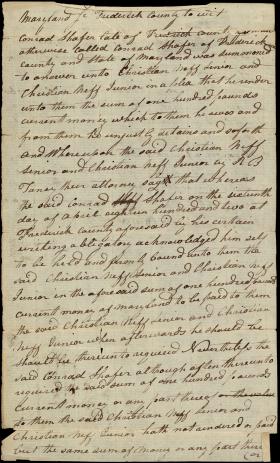 Maryland Sc Frederick County to wit
Conrad Shafer late of Frederick County
otherwise called Conrad Shafer of Frederick
county and State of Maryland was summoned
to answer unto Christian Neff Senior and
Christian Neff Junior in a plea that he render
unto them the sum of one hundred pounds
current money which to them he owes and
from them unjustly detains and so forth
and Whereupon the said Christian Neff
Senior and Christian Neff Junior by R B
Taney their attorney say that whereas
the said Conrad Shafer on the sixteenth
day of April eighteen hundred and two at
Frederick County aforesaid by his certain
writing obligatory acknowledged him self
to be held and firmly bound unto them the
said Christian Neff Senior and Christian Neff
Junior in the aforesaid sum of one hundred pounds
current money of maryland to be paid to them
the said Christian Neff Senior and Christian
Neff Junior when afterwards he should be
should be thereunto required Nevertheless the
said Conrad Shafer although often thereunto
required the said sum of one hundred pounds
current money or any part thereof
to them the said Christian Neff Senior and
Christian Neff Junior hath not rendered or paid
but the same sum of money or any part there